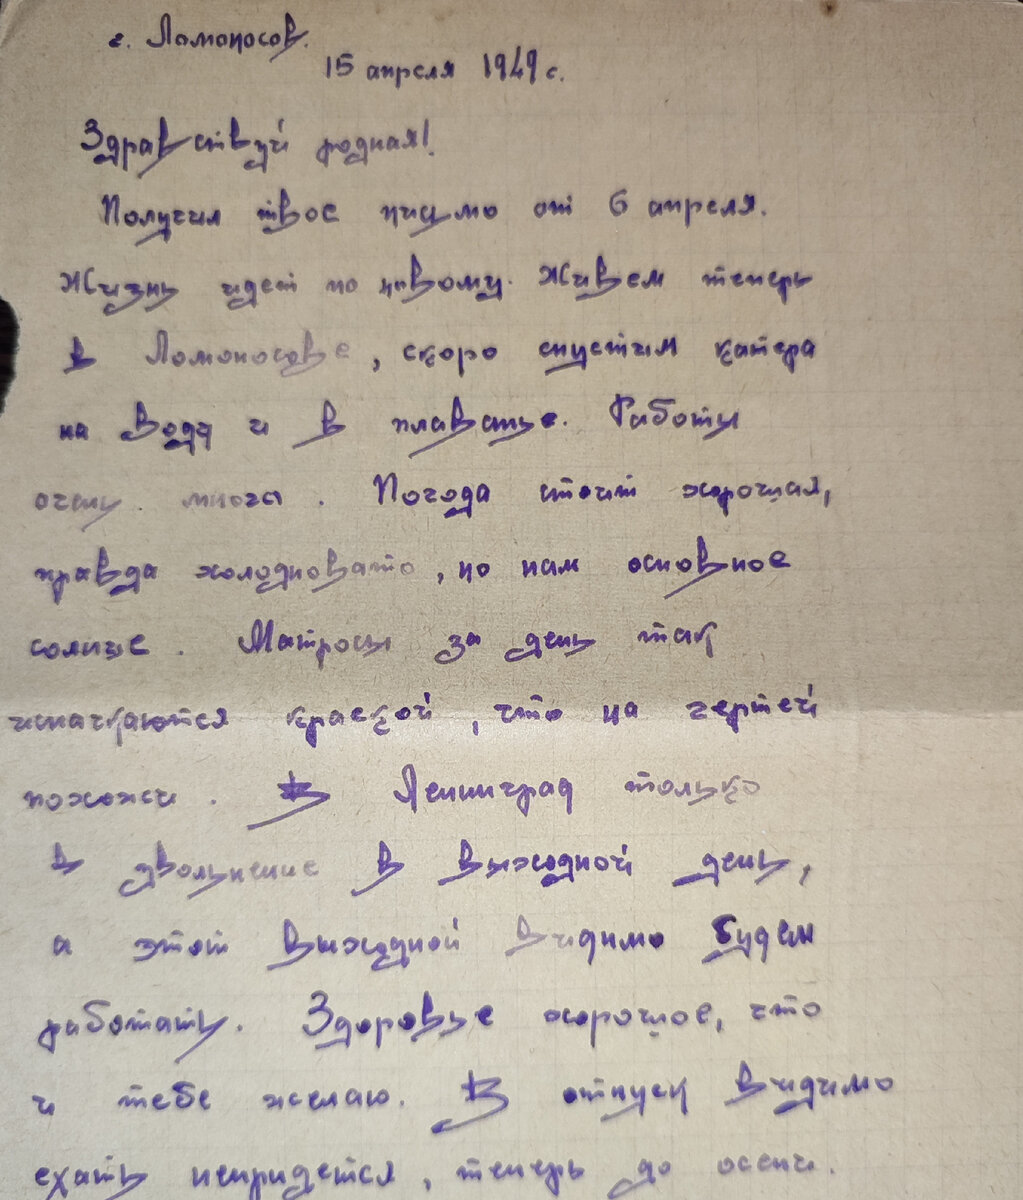 г. Ломоносов.
15 апреля 1949 г.
Здравствуй родная!
Получил твое письмо от 6 апреля.
Жизнь идет по новому. Живем теперь
в Ломоносове, скоро спустим катера
на воду и в плаванье. Работы
очень много. Погода стоит хорошая,
правда холодновато, но нам основное
солнце. Матросы за день так
испачкаются краской, что на чертей
похожи. В Ленинград только
в увольнение в выходной день,
а этот выходной видимо будем
работать. Здоровье хорошое, что
и тебе желаю. В отпуск видимо
ехать непридется, теперь до осени.